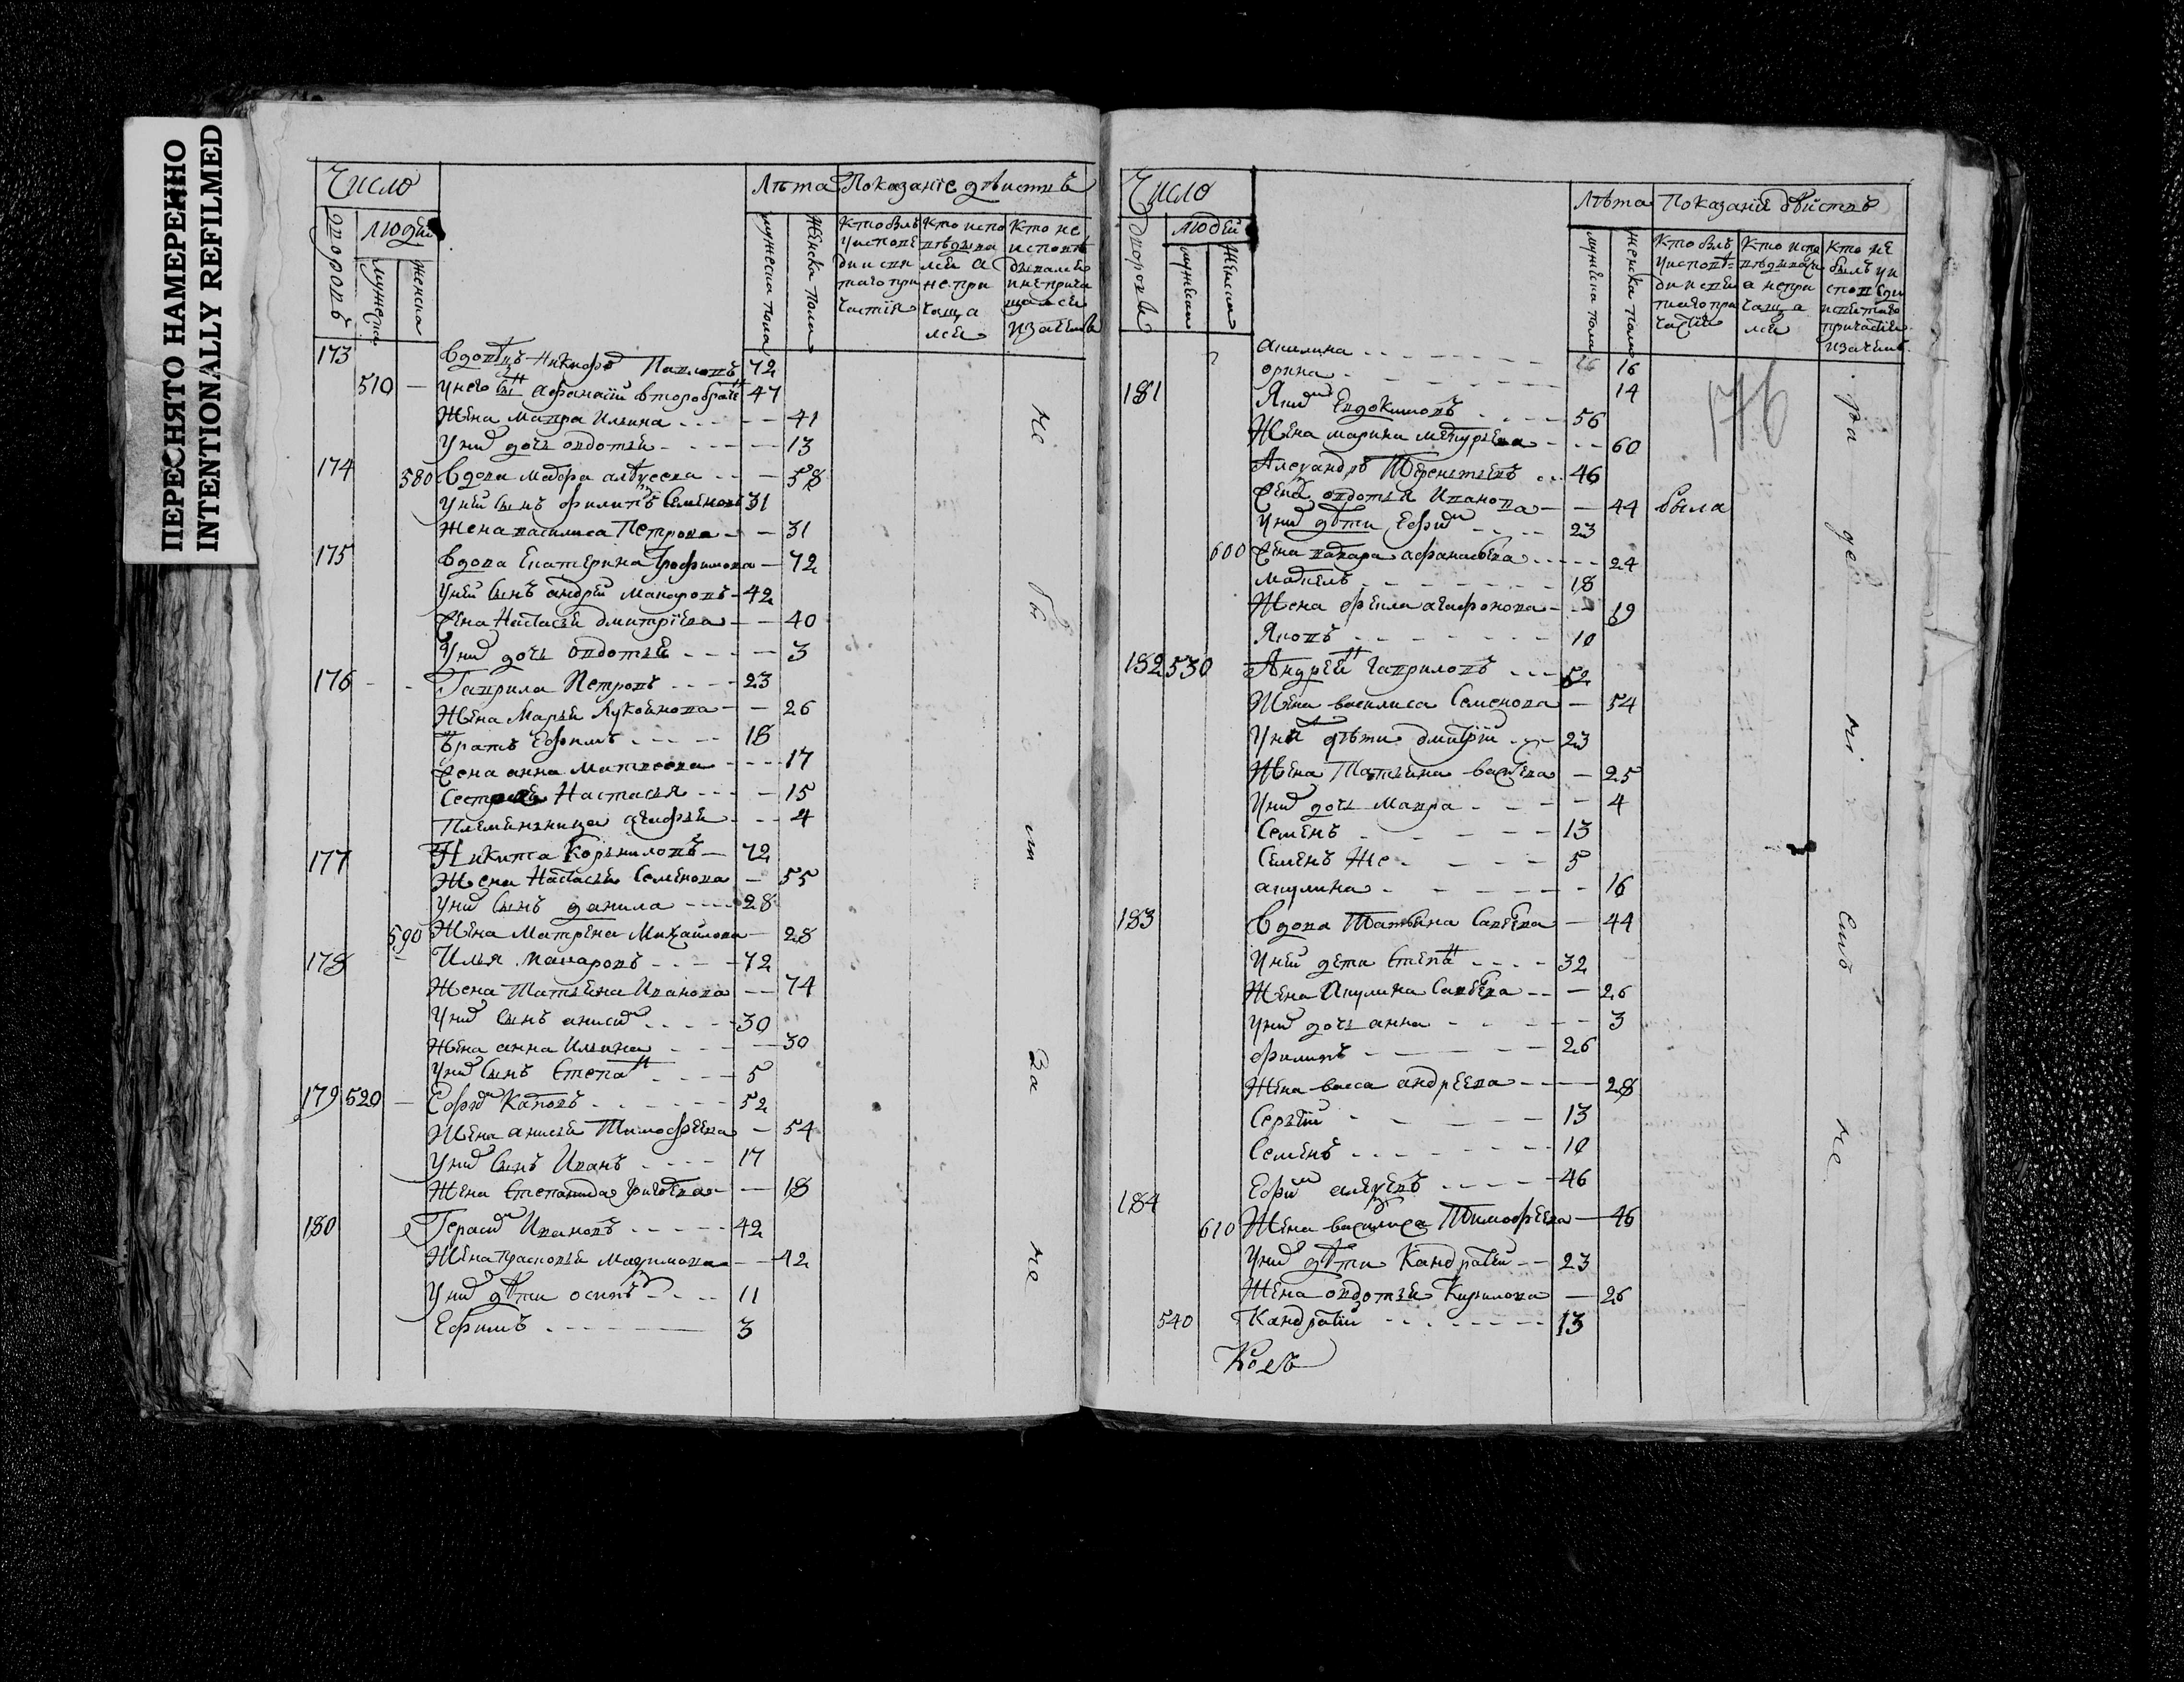 ПЕРЕСНЯТО НАМЕРЕННО
INTENTIONALLY REFILMED
Число
Лѣта Показанїе дѣиствъ
дворовъ
людей
мужеска
женска
мужеска пола
женска пола
кто былъ
у исповѣ
ди и свя
таго при
частїя
кто испо
вѣдыва
лся а
не при
чаща
лся
кто не
исповѣ
дывался
и не прича
щался
и за чемъ
173 Вдовецъ Никифоръ Павловъ 72
510 — у него сынъ Афанасїй второбрачн 47
Жена Мавра Ильина — 41
у них дочь Овдотья — 13
174 580 Вдова Маѳра Алѣѯеева — 58
у ней сынъ Филипъ Семеновъ 31
Жена Василиса Петрова — 31
175 Вдова Екатерина Трофимова — 72
у ней сынъ Андрей Макаровъ 42
Жена Настасья Дмитрїева — 40
у них дочь Овдотья — 3
176 Гаврила Петровъ 23
Жена Марья Лукоянова — 26
Братъ Ефимъ 18
Жена Анна Матвеева — 17
Сестра Настасья — 15
Племянница Агафья — 4
177 Никита Корниловъ 72
Жена Настасья Семенова — 55
у них сынъ Данила 28
590 Жена Матрена Михайлова — 28
178 Илья Макаровъ 72
Жена Татьяна Иванова — 74
у них сынъ Анисим 30
Жена Анна Ильина — 30
у них сынъ Степан 5
179 520 — Ефим Каповъ 52
Жена Анисья Тимоѳеева — 54
у них сынъ Иванъ 17
Жена Степанида Григорева — 18
180 Герасим Ивановъ 42
Жена Прасковья Маѯимова — 42
у них дѣти Осипъ 11
Ефимъ 3
не
бы
ли
за
не
Число
Лѣта Показанїе дѣйствъ
дворовъ
людей
мужеска
женска
мужеска пола
женска пола
кто былъ
у исповѣ
ди и свя
таго при
частїя
кто испо
вѣдывался
а не при
чаща
лся
кто не
былъ у и
споведи
и святаго
причастїя
и за чемъ
Акилина 16
Орина 14
181 Яким Евдокимовъ 56
Жена Марина Меркурьева — 60
Алеѯандръ Терентьевъ 46
Жена Овдотья Иванова — 44 была
у них дѣти Ефим 23
600 Жена Варвара Афанасьева — 24
Матвеъ 18
Жена Фекла Агафонова — 19
Яковъ 10
182 530 Андрей Гавриловъ 52
Жена Василиса Семенова — 54
у них дѣти Дмитрїй 23
Жена Татьяна — 25
у них дочь Мавра — 4
Семенъ 13
Семенъ же 5
Акулина — 16
183 Вдова Татьяна Савѣева — 44
у ней дети Степан 32
Жена Акулина Савѣева — 26
у них дочь Анна — 3
Филипъ 26
Жена Васса Андреева — 28
Сергѣй 13
Семенъ 10
184 Ефим Алеѯеевъ 46
610 Жена Василиса Тимоѳеева — 46
у них дѣти Кандратей 23
Жена Овдотья Кирилова — 26
540 Кандратей 13
176
ра
де
ни
ем
не